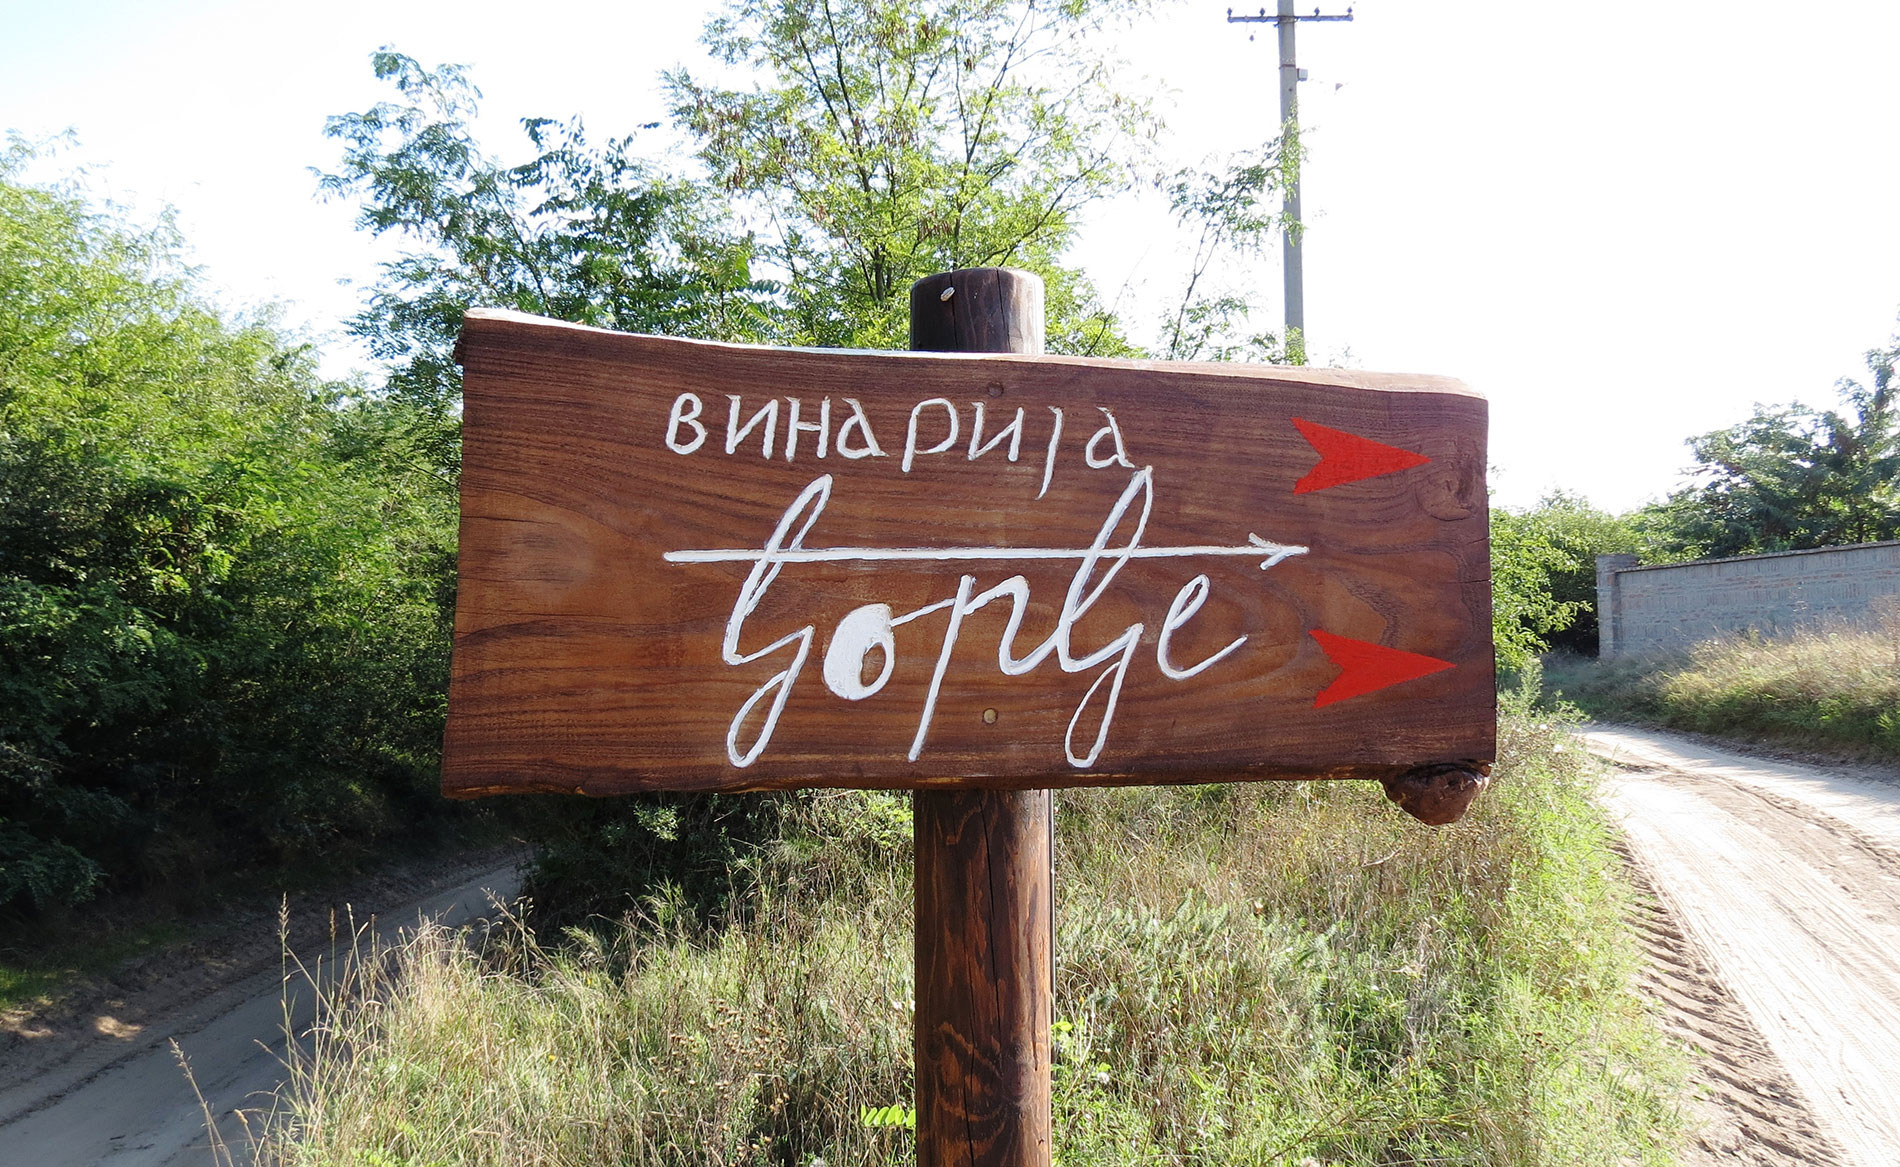 винарија
ђорђе